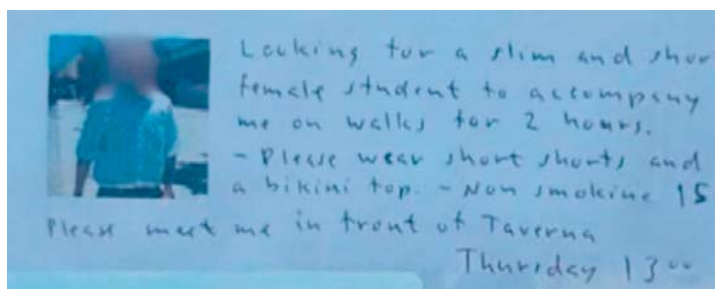 Looking for a slim and shor
female student to accompany
me on walks for 2 hours.
- Please wear short shorts and
a bikini top. - Non smoking 15
Please meet me in front of Taverna
Thursday 13 00